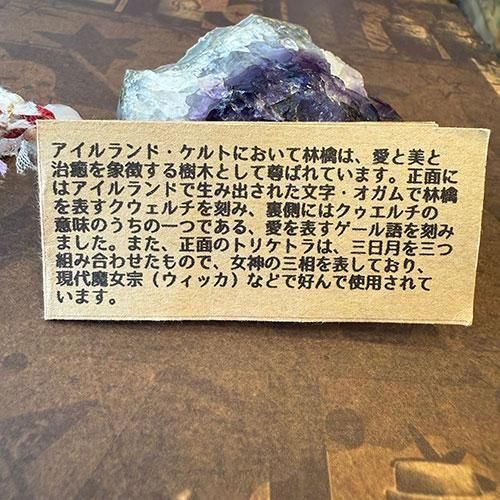 アイルランド・ケルトにおいて林檎は、愛と美と
治癒を象徴する樹木として尊ばれています。正面に
はアイルランドで生み出された文字・オガムで林檎
を表すクウェルチを刻み、裏側にはクゥエルチの
意味のうちの一つである、愛を表すゲール語を刻み
ました。また、正面のトリケトラは、三日月を三つ
組み合わせたもので、女神の三相を表しており、
現代魔女宗（ウィッカ）などで好んで使用されて
います。